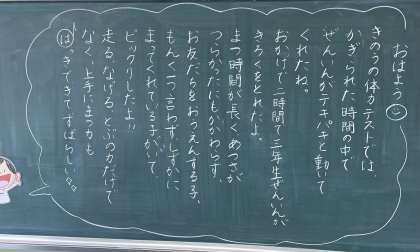 おはよう
きのうの体力テストでは
かぎられた時間の中で
ぜんいんがテキパキと動いて
くれたね。
おかげで二時間で三年生ぜんいんが
きろくをとれたよ。
まつ時間が長くあつさが
つらかったにもかかわらず、
お友だちをおうえんする子、
もんく一つ言わずしずかに
まってくれている子がいて、
ビックリしたよ!!
走る、なげる、とぶの力だけで
なく、上手にまつ力も
はっきできてすばらしい。